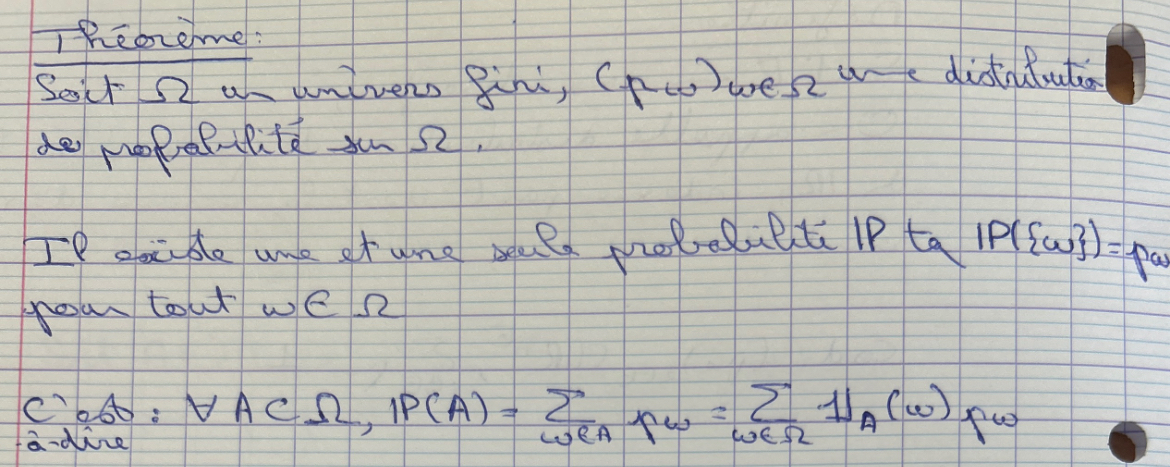 Théorème:
Soit Ω un univers fini, (pω)ω∈Ω une distribution
de probabilité sur Ω.
Il existe une et une seule probabilité IP tq IP({ω})=pω
pour tout ω ∈ Ω
C'est : ∀ A ⊂ Ω, IP(A) = ∑ω∈A pω = ∑ω∈Ω 𝟙A(ω) pω
-à-dire